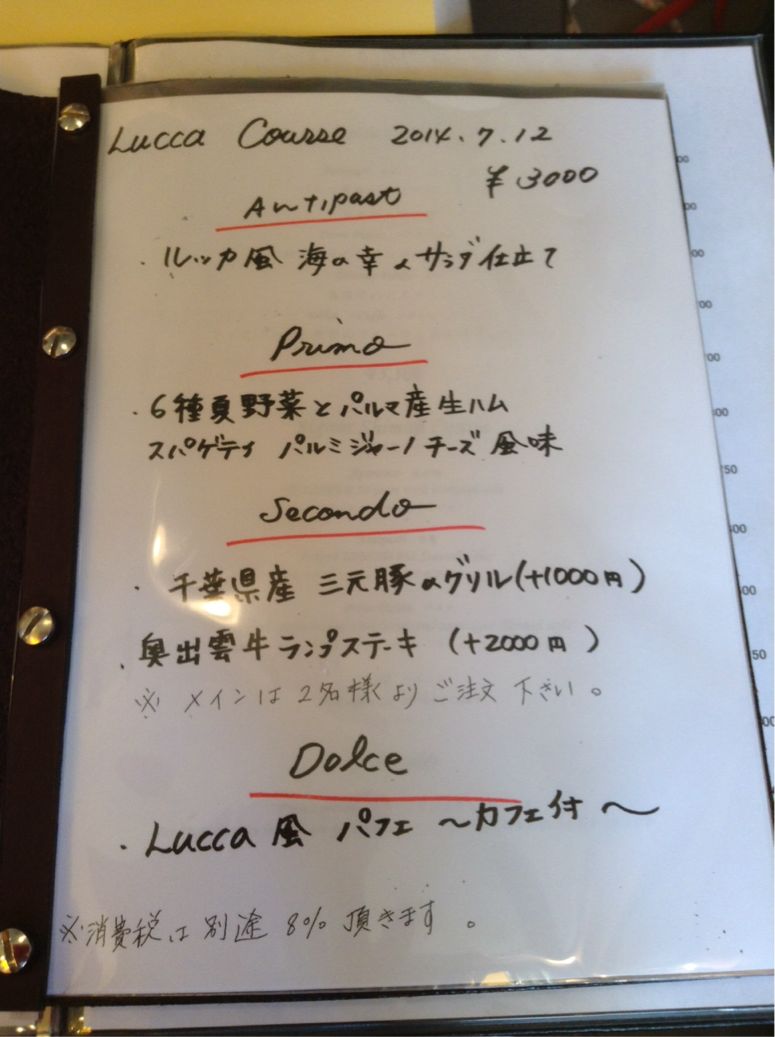 Lucca Course 2014.7.12
¥3000
Antipast
・ルッカ風 海の幸のサラダ仕立て
Primo
・6種夏野菜とパルマ産生ハム
スパゲティ パルミジャーノチーズ風味
Secondo
・千葉県産 三元豚のグリル(+1000円)
・奥出雲牛ランプステーキ (+2000円)
※ メインは2名様よりご注文下さい。
Dolce
・Lucca風 パフェ 〜カフェ付〜
※消費税は別途8%頂きます。
00
00
00
00
00
50
00
50